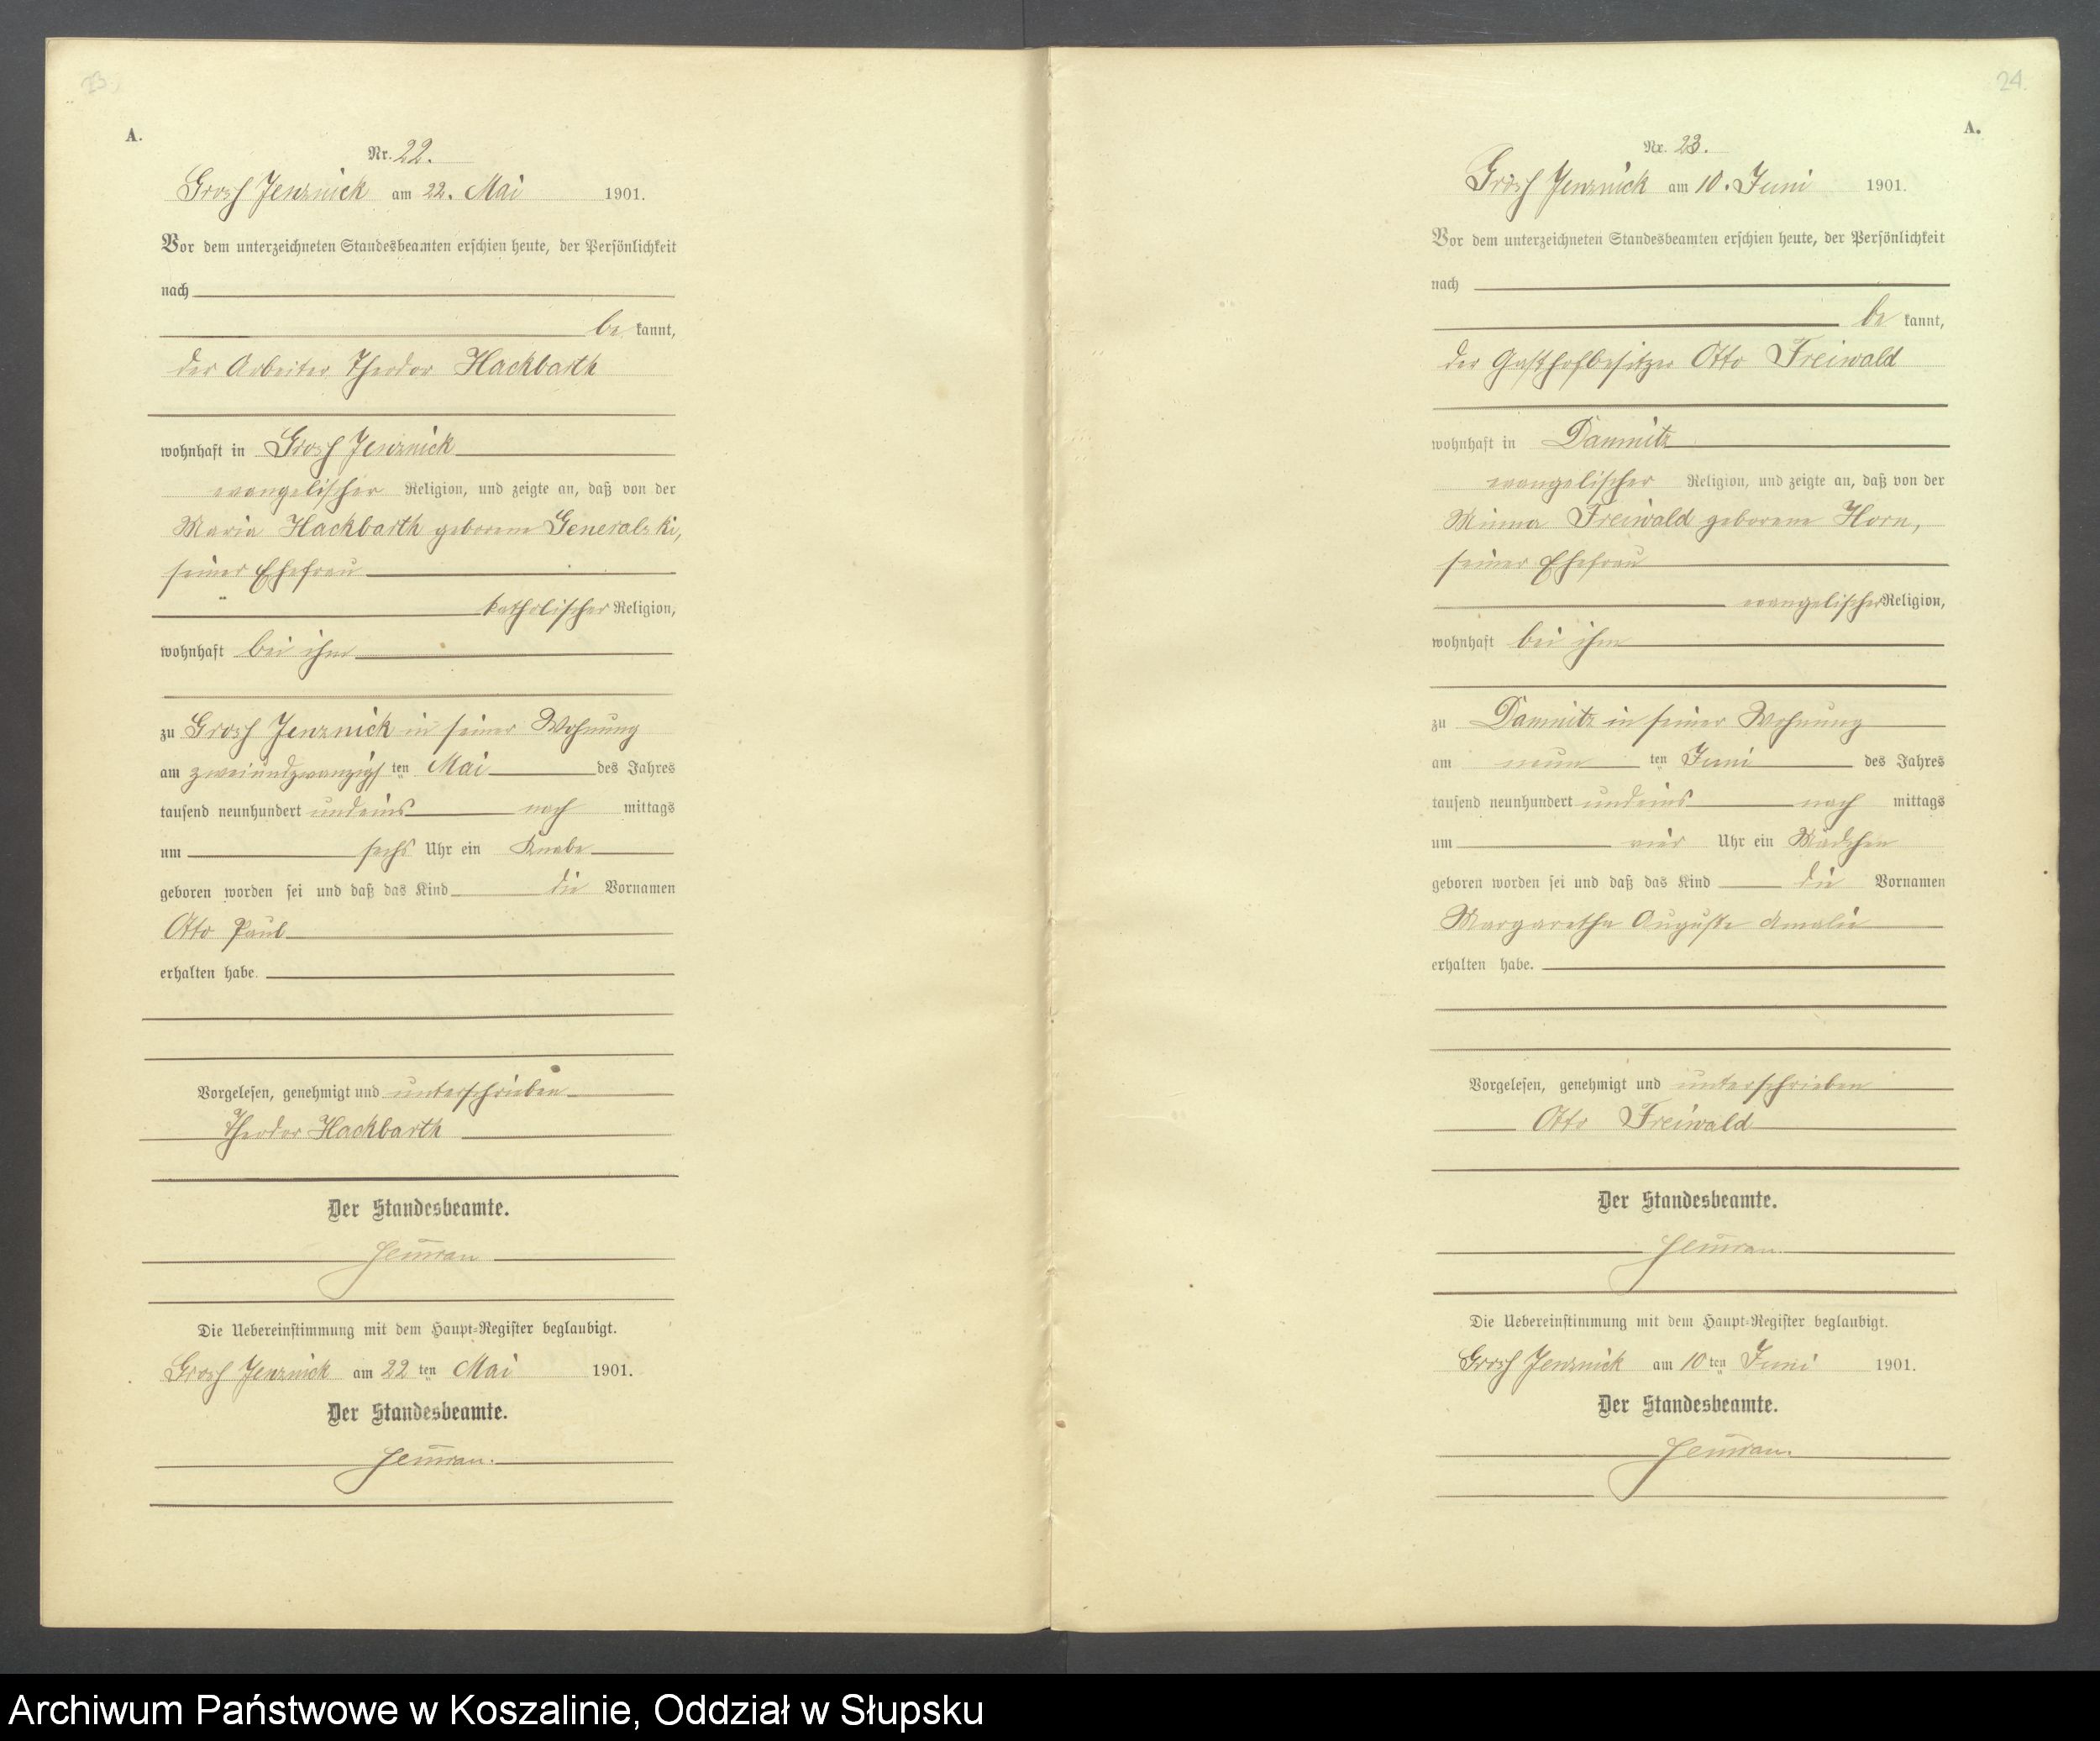 23.
A.
Nr. 22.
Gross Jenznick am 22. Mai 1901.
Vor dem unterzeichneten Standesbeamten erschien heute, der Persönlichkeit
nach
be kannt,
der Arbeiter Theodor Hackbarth
wohnhaft in Gross Jenznick
evangelischer Religion, und zeigte an, daß von der
Maria Hackbarth geborene Generalski,
seiner Ehefrau
katholischer Religion,
wohnhaft bei ihm
zu Gross Jenznick in seiner Wohnung
am zweiundzwanzigsten Mai des Jahres
tausend neunhundert undeins nach mittags
um sechs Uhr ein Knabe
geboren worden sei und daß das Kind die Vornamen
Otto Paul
erhalten habe.
Vorgelesen, genehmigt und unterschrieben
Theodor Hackbarth
Der Standesbeamte.
Die Uebereinstimmung mit dem Haupt-Register beglaubigt.
Gross Jenznick am 22 ten Mai 1901.
Der Standesbeamte.
24.
A.
Nr. 23.
Gross Jenznick am 10. Juni 1901.
Vor dem unterzeichneten Standesbeamten erschien heute, der Persönlichkeit
nach
be kannt,
der Gasthofbesitzer Otto Freiwald
wohnhaft in Damnitz
evangelischer Religion, und zeigte an, daß von der
Minna Freiwald geborene Horn,
seiner Ehefrau
evangelischer Religion,
wohnhaft bei ihm
zu Damnitz in seiner Wohnung
am neun ten Juni des Jahres
tausend neunhundert undeins nach mittags
um vier Uhr ein Mädchen
geboren worden sei und daß das Kind die Vornamen
Margarethe Auguste Amalie
erhalten habe.
Vorgelesen, genehmigt und unterschrieben
Otto Freiwald
Der Standesbeamte.
Die Uebereinstimmung mit dem Haupt-Register beglaubigt.
Gross Jenznick am 10 ten Juni 1901.
Der Standesbeamte.
Archiwum Państwowe w Koszalinie, Oddział w Słupsku